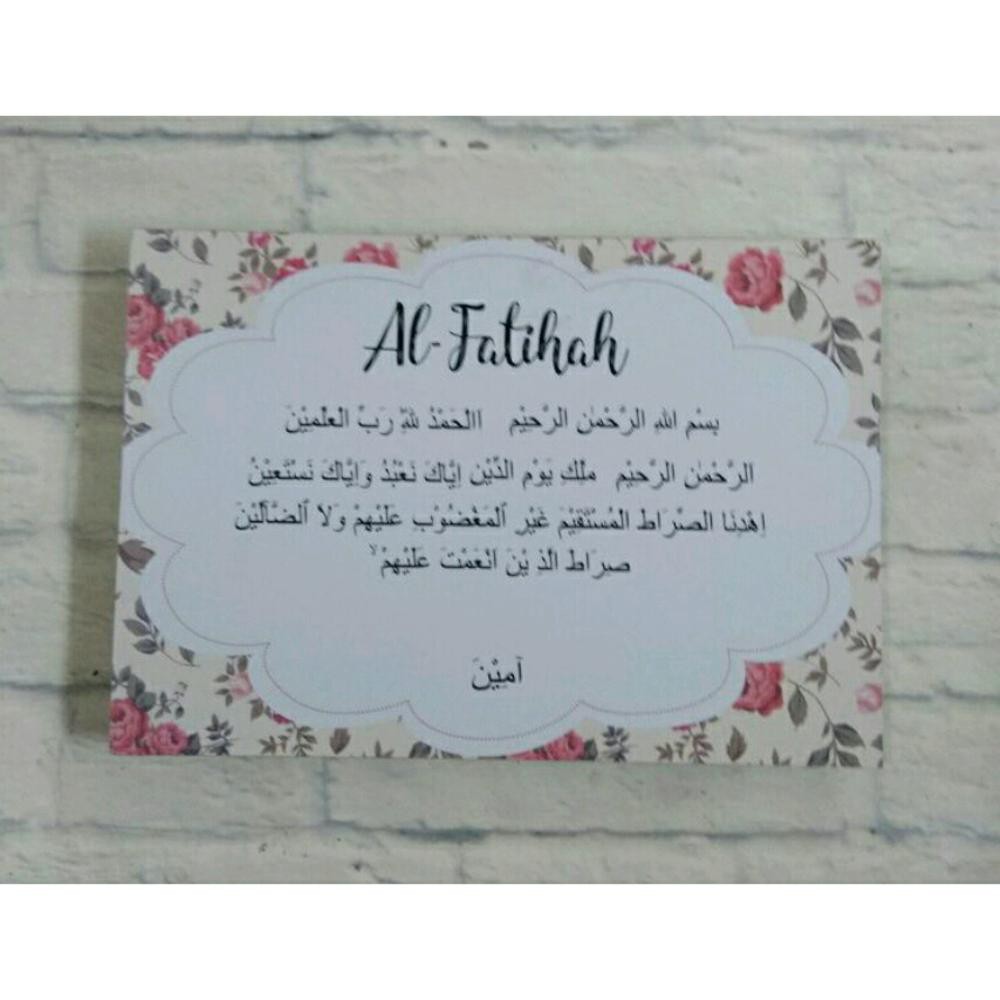 Al-Fatihah
بِسْمِ اللهِ الرَّحْمٰنِ الرَّحِيْمِ االْحَمْدُ لِلّٰهِ رَبِّ الْعٰلَمِيْنَ
الرَّحْمٰنِ الرَّحِيْمِ مٰلِكِ يَوْمِ الدِّيْنِ اِيَّاكَ نَعْبُدُ وَاِيَّاكَ نَسْتَعِيْنُ
اِهْدِنَا الصِّرَاطَ الْمُسْتَقِيْمَ غَيْرِ الْمَغْضُوْبِ عَلَيْهِمْ وَلَا الضَّآلِّيْنَ
صِرَاطَ الَّذِيْنَ اَنْعَمْتَ عَلَيْهِمْ ۙ
آمِيْنَ